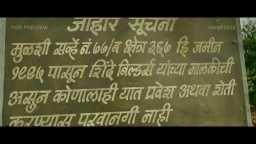 जाहीर सूचना
मुळशी सर्व्हे नं. ७७/ब क्षेत्र २६७ हि जमीन
१९९५ पासून शिंदे बिल्डर्स यांच्या मालकीची
असुन कोणालाही यात प्रवेश अथवा शेती
करण्यास परवानगी नाही